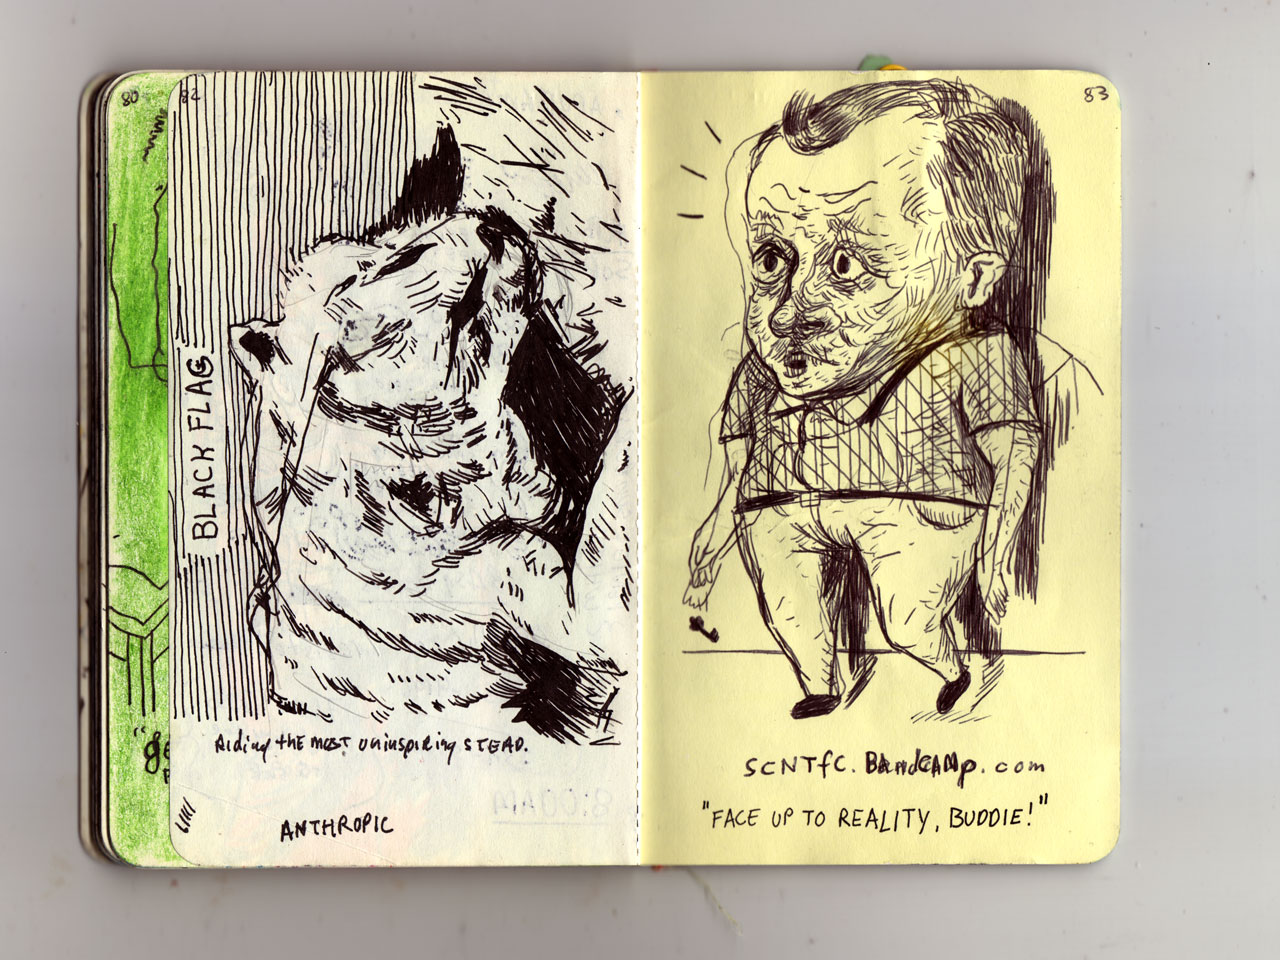 80
82
BLACK FLAG
Riding the most uninspiring STEAD.
ANTHROPIC
8:00AM
83
SCNTfC. BANdCAMp. com
"FACE UP TO REALITY, BUDDIE!"